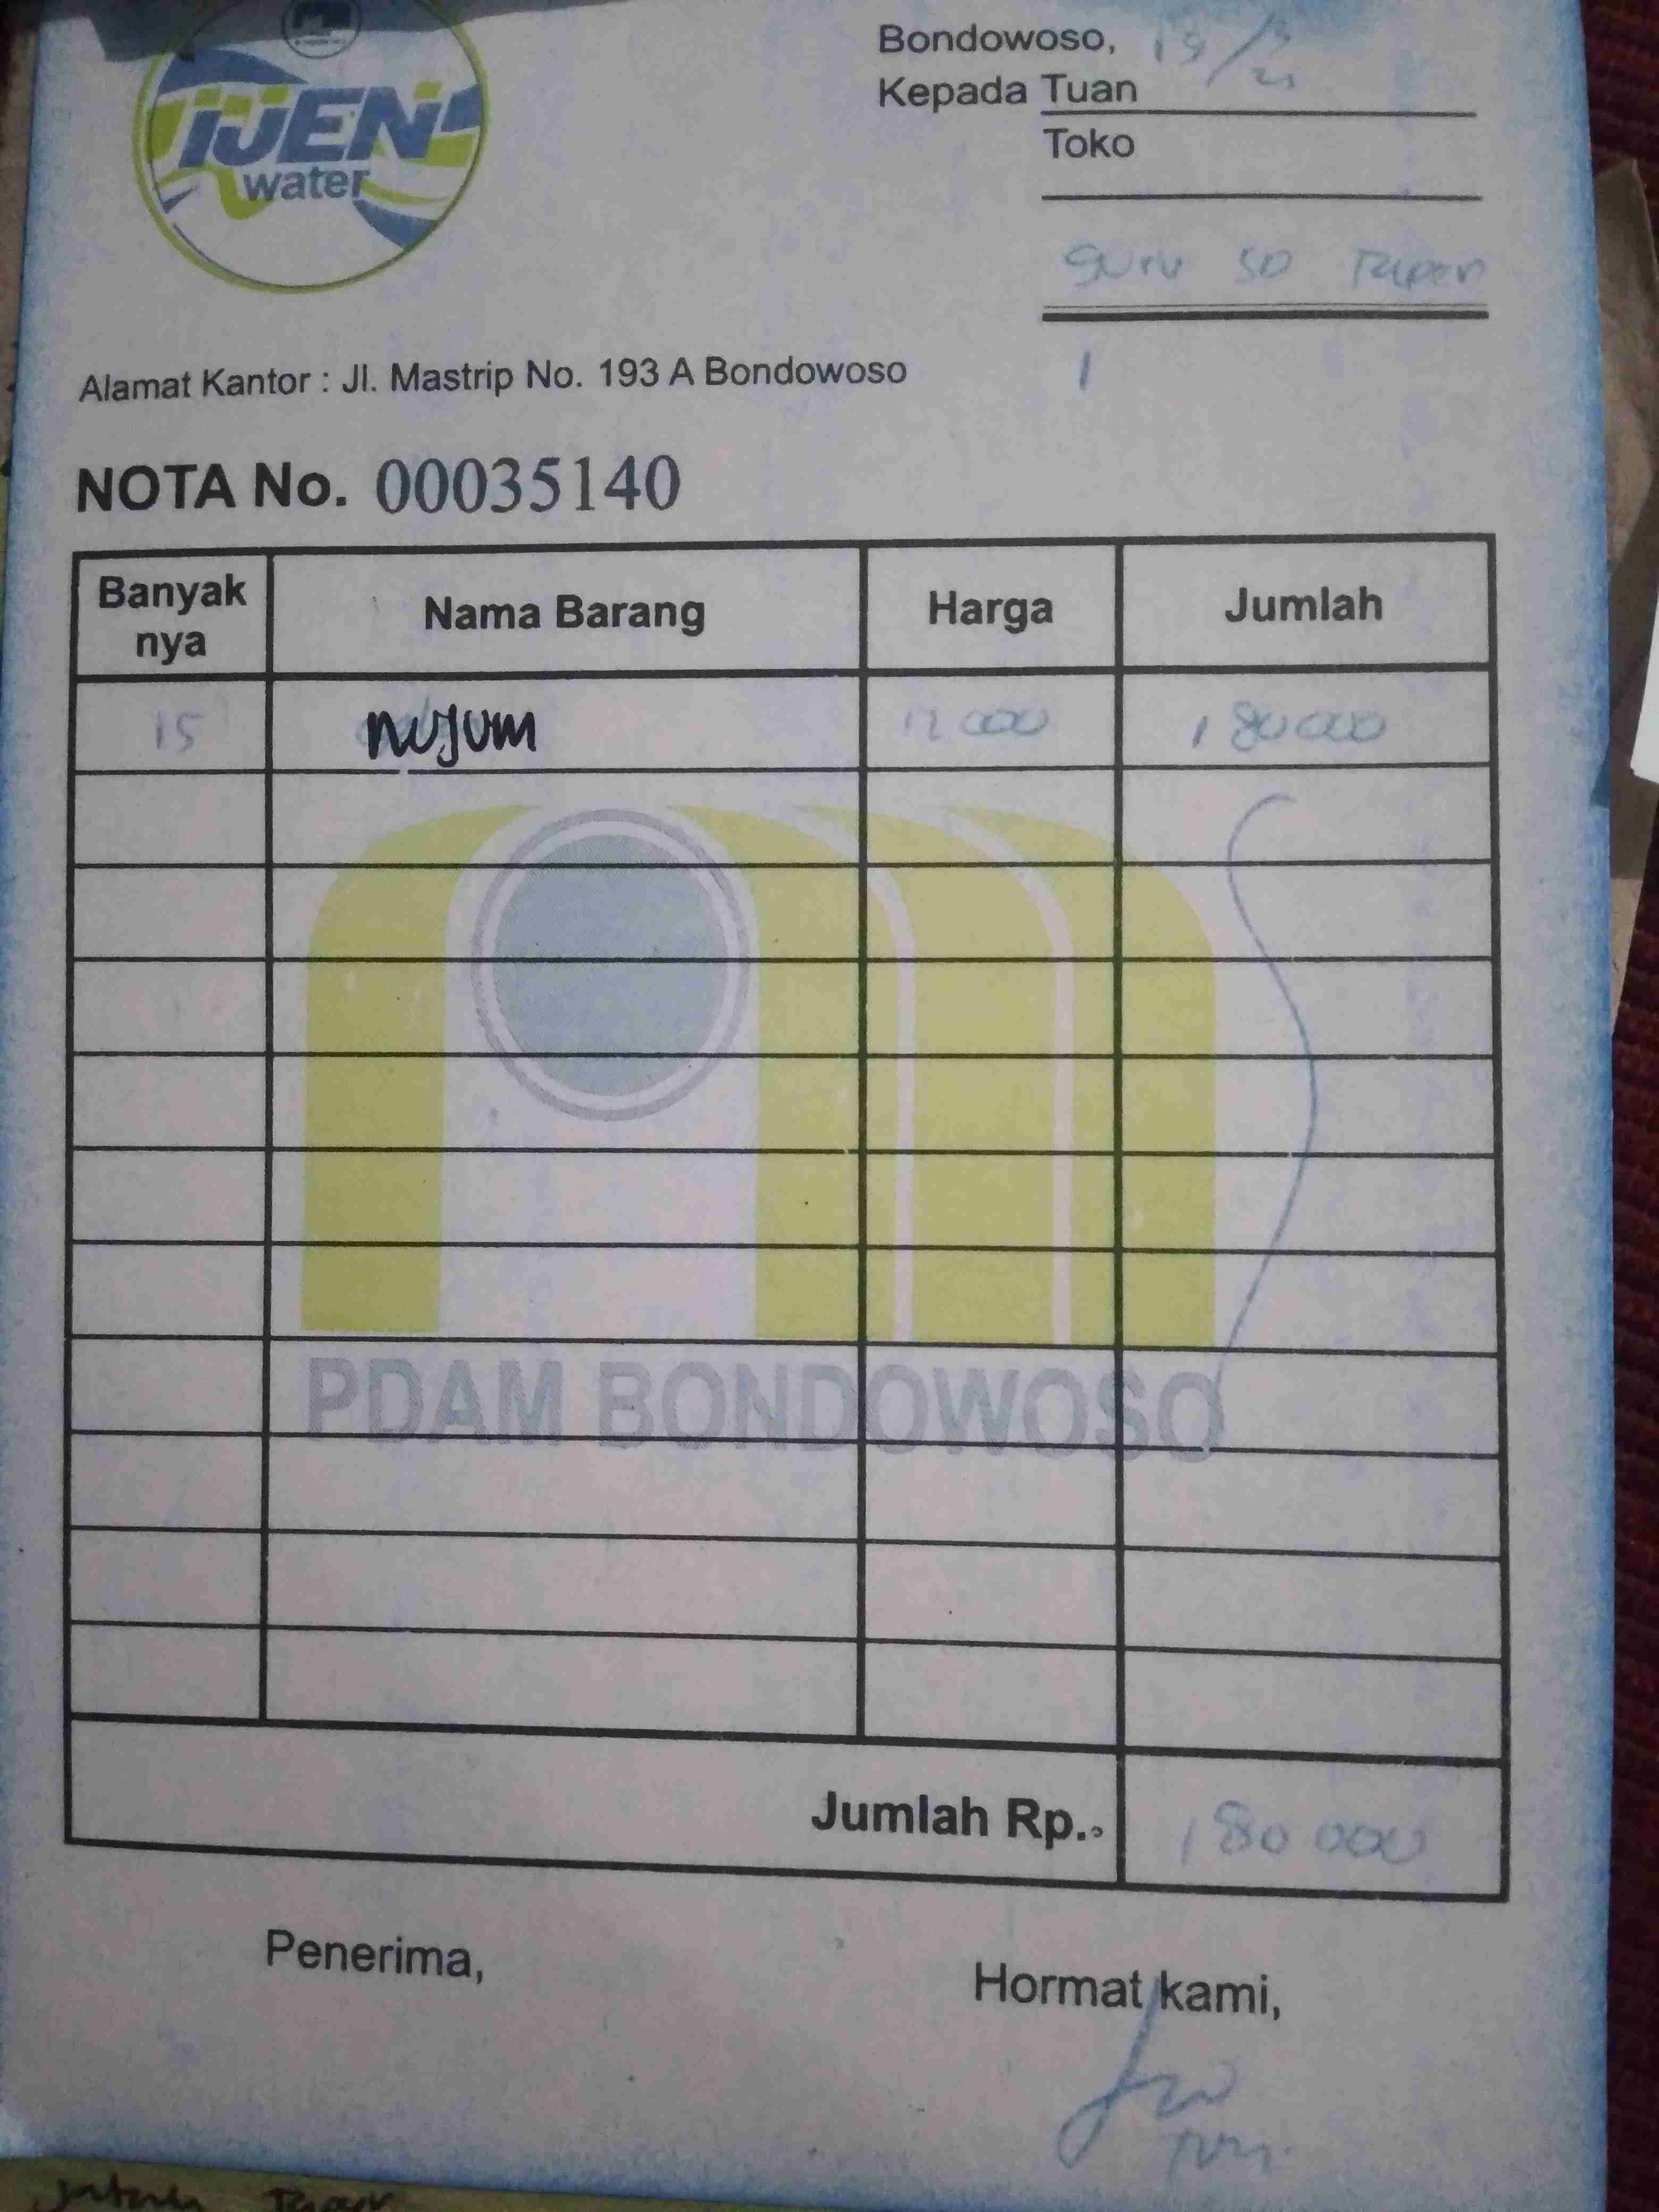 iJEN
water
Bondowoso, 19/3
21
Kepada Tuan
Toko
Guru SD Tapen
Alamat Kantor : Jl. Mastrip No. 193 A Bondowoso
NOTA No. 00035140
Banyak nya Nama Barang Harga Jumlah
15 nujum 12 000 180 000
PDAM BONDOWOSO
Jumlah Rp. 180 000
Penerima,
Hormat kami,